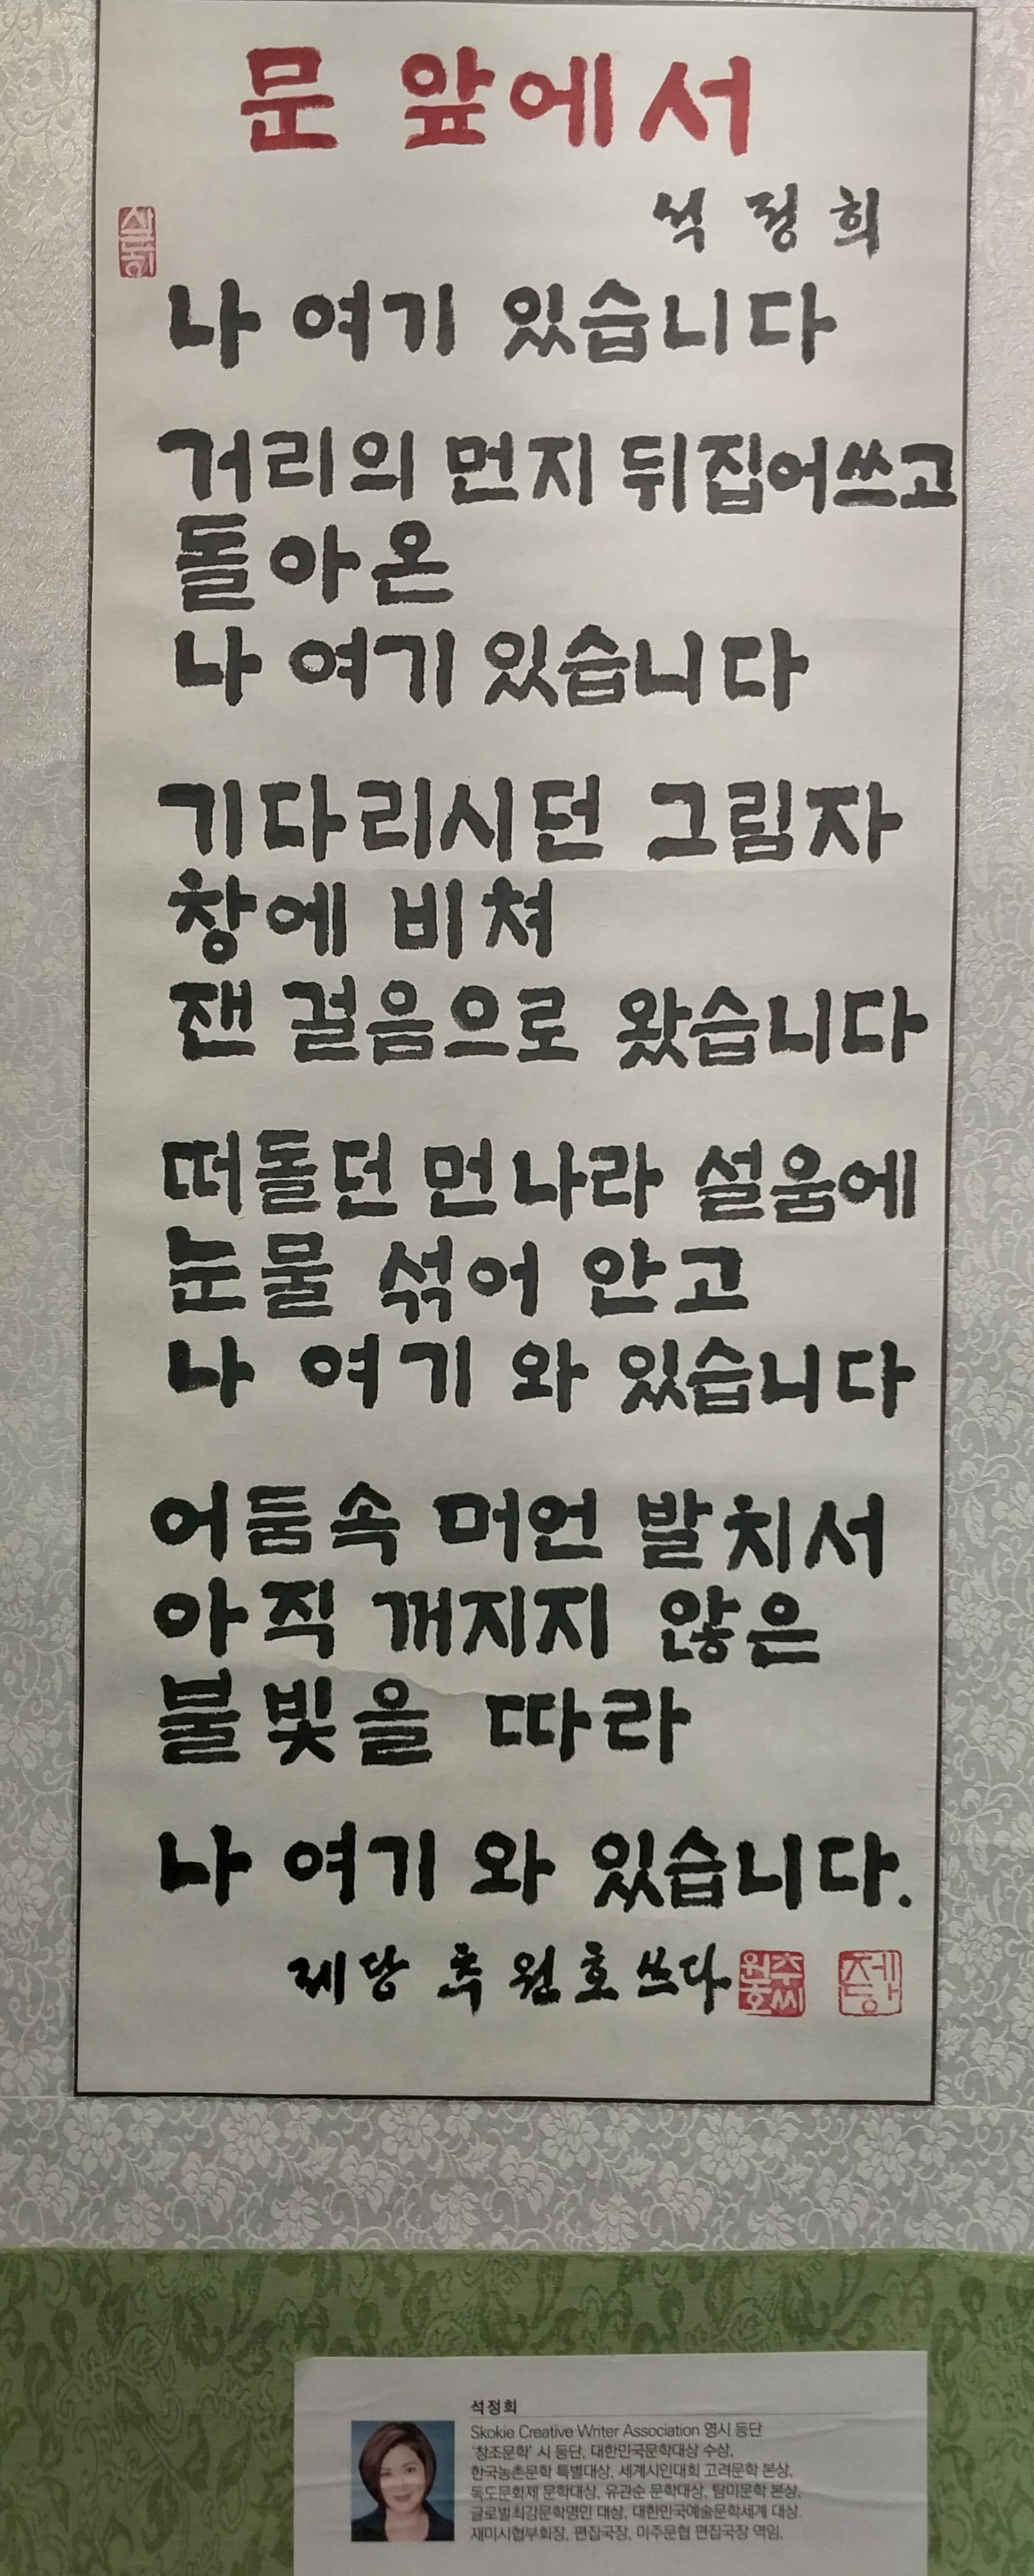 문 앞에서
석정희
나 여기 있습니다
거리의 먼지 뒤집어쓰고
돌아온
나 여기 있습니다
기다리시던 그림자
창에 비쳐
잰 걸음으로 왔습니다
떠돌던 먼나라 설움에
눈물 섞어 안고
나 여기 와 있습니다
어둠속 머언 발치서
아직 꺼지지 않은
불빛을 따라
나 여기 와 있습니다.
제당 추원호 쓰다
추씨원호
제당
석정희
Skokie Creative Writer Association 영시 등단
'창조문학' 시 등단, 대한민국문학대상 수상,
한국농촌문학 특별대상, 세계시인대회 고려문학 본상,
독도문화제 문학대상, 유관순 문학대상, 탐미문학 본상,
글로벌최강문학명인 대상, 대한민국예술문학세계 대상.
재미시협부회장, 편집국장, 미주문협 편집국장 역임,